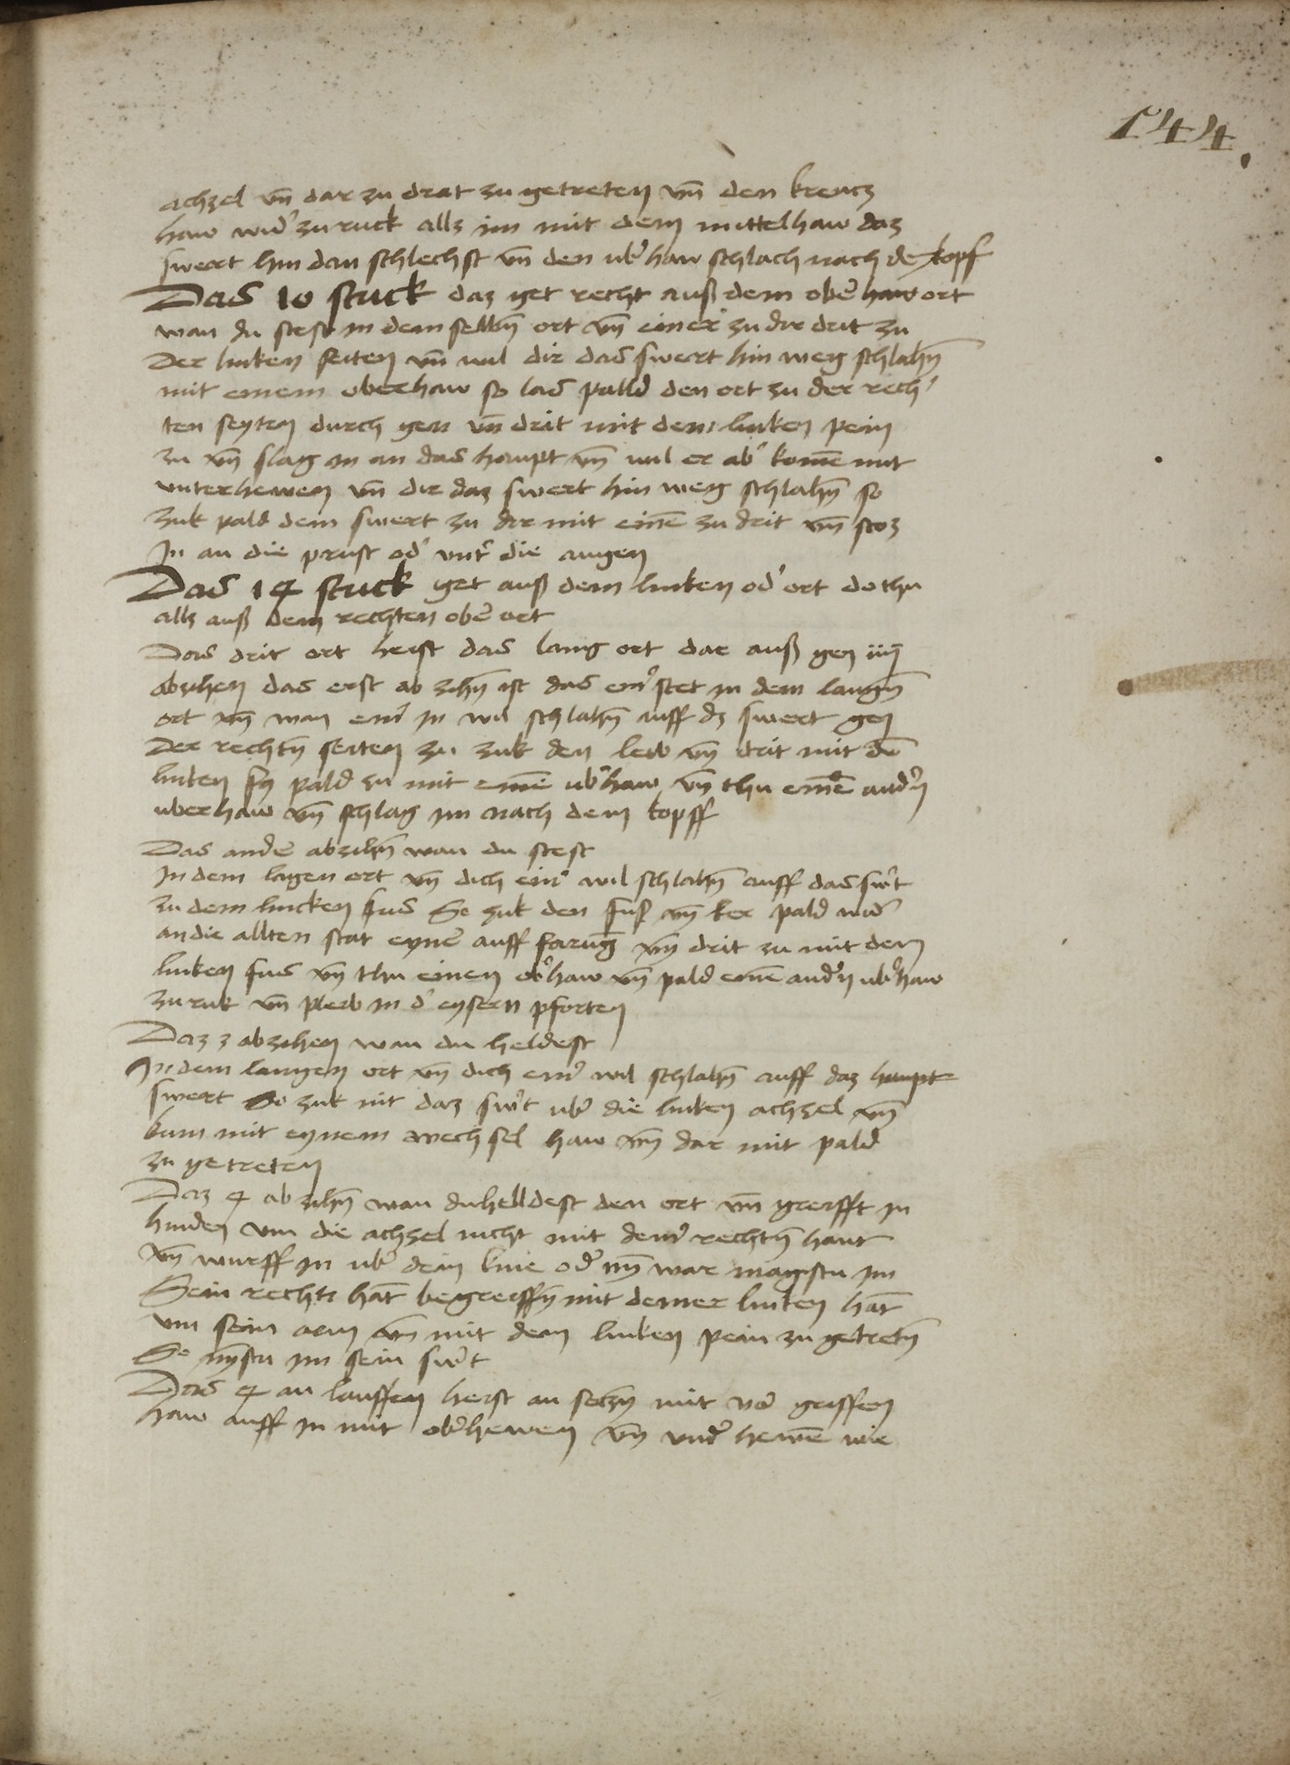 144.
achzel vn̄ dar zu drat zu getreten vn̄ den kreucz
haw wid' zu ruck alls im mit dem mittelhaw daz
swert hin dan schlechst vn̄ den ub'haw schlach nach de kopf
Das 10 stuck daz get recht auß dem obē haw ort
wan du stest in dem selbn̄ ort vn̄ einer zu dir drit zu
Der linken seiten vn̄ wil dir das swert hin weg schlahn̄
mit einem oberhaw so las palld den ort zu der rech
ten seyten durch gen vn̄ drit mit dem linken pein
zu vn̄ slag in an das haupt vn̄ wil er ab' komē mit
unterhewen vn̄ dir daz swert hin weg schlahn̄ so
zuk pald dem swert zu dir mit einē zu drit vn̄ stoz
In an die prust od' unt' die augen
Das 14 stuck get auß dem linken od' ort do thu
alls auß dem rechten obē ort
Das drit ort heist das lang ort dar auß gen iiij
abzihen das erst ab zihn̄ ist das ein' stet in dem langn̄
ort vn̄ wan ein' in wil schlahn̄ auff dz swert gen
Der rechtn̄ seiten zu zuk den leib vn̄ drit mit dē
linken fuß pald zu mit einē ub'haw vn̄ thu einē and'n
uberhaw vn̄ schlag im nach dem kopff
Das ander abzihn̄ wan du stest
In dem lagen ort vn̄ dich ein' wil schlahn̄ auff das sw't
zu dem lincken fus So zuk den fuß vn̄ ker pald wid'
an die allten stat eyner auff farūg vn̄ drit zu mit dem
linken fus vn̄ thu einen ob'haw vn̄ pald einē and'n ub'haw
zu ruk vn̄ pleib in d' eysern pforten
Daz 3 abzihen wan du heldest
In dem langen ort vn̄ dich ein' wil schlahn̄ auff daz haupt
swert So zuk nit daz sw't ub' die linken achzel vn̄
kum mit eynem wechsel haw vn̄ dar mit pald
zu getreten
Daz 4 ab zihn̄ wan du helldest den ort vn̄ greifft in
hinden um die achzel nicht mit dein' rechtn̄ hant
vn̄ wurff in ub' dein knie od' nȳ war magstu im
Sein recht hāt begreiffn̄ mit deiner linken hāt
um sein arm vn̄ mit dem linken pein zu getretn̄
So nȳstu im sein sw't
Das 4 an lauffen heist an seczn̄ mit vor griffen
haw auff in mit ob'hewen vn̄ und' hewē wie